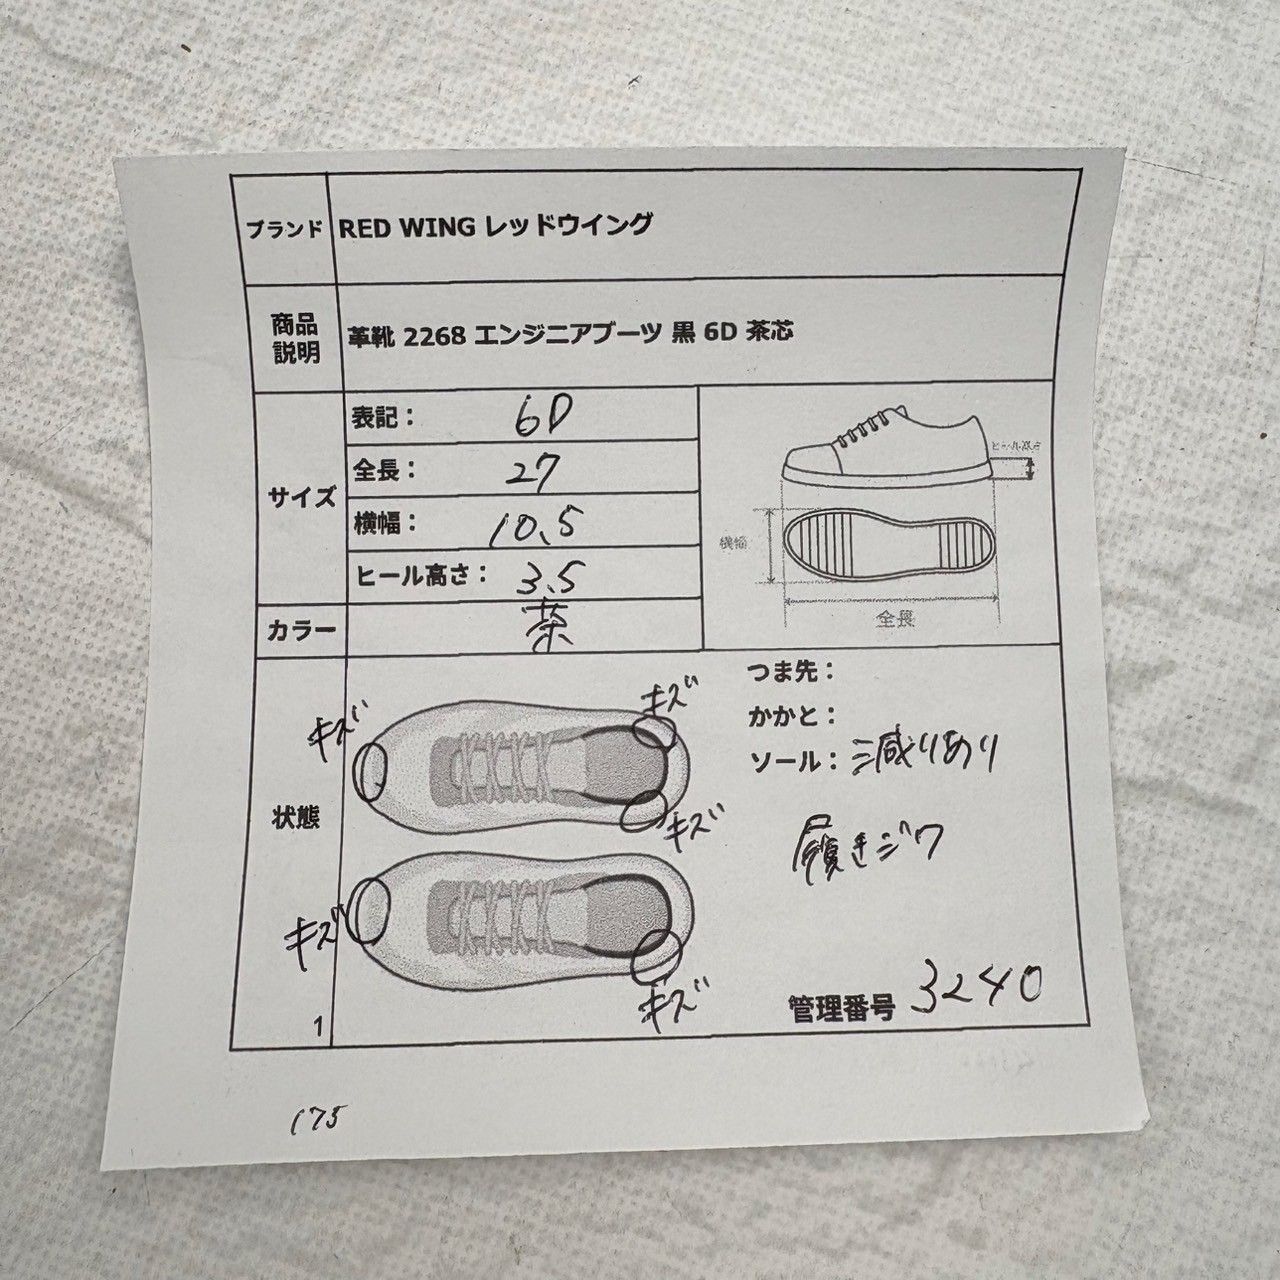 ブランド RED WING レッドウイング
商品説明 革靴 2268 エンジニアブーツ 黒 6D 茶芯
サイズ
表記： 6D
全長： 27
横幅： 10.5
ヒール高さ： 3.5
ヒール高さ
横幅
全長
カラー 茶
状態
キズ
キズ
キズ
キズ
キズ
つま先：
かかと：
ソール： 減りあり
履きジワ
管理番号 3240
1
175